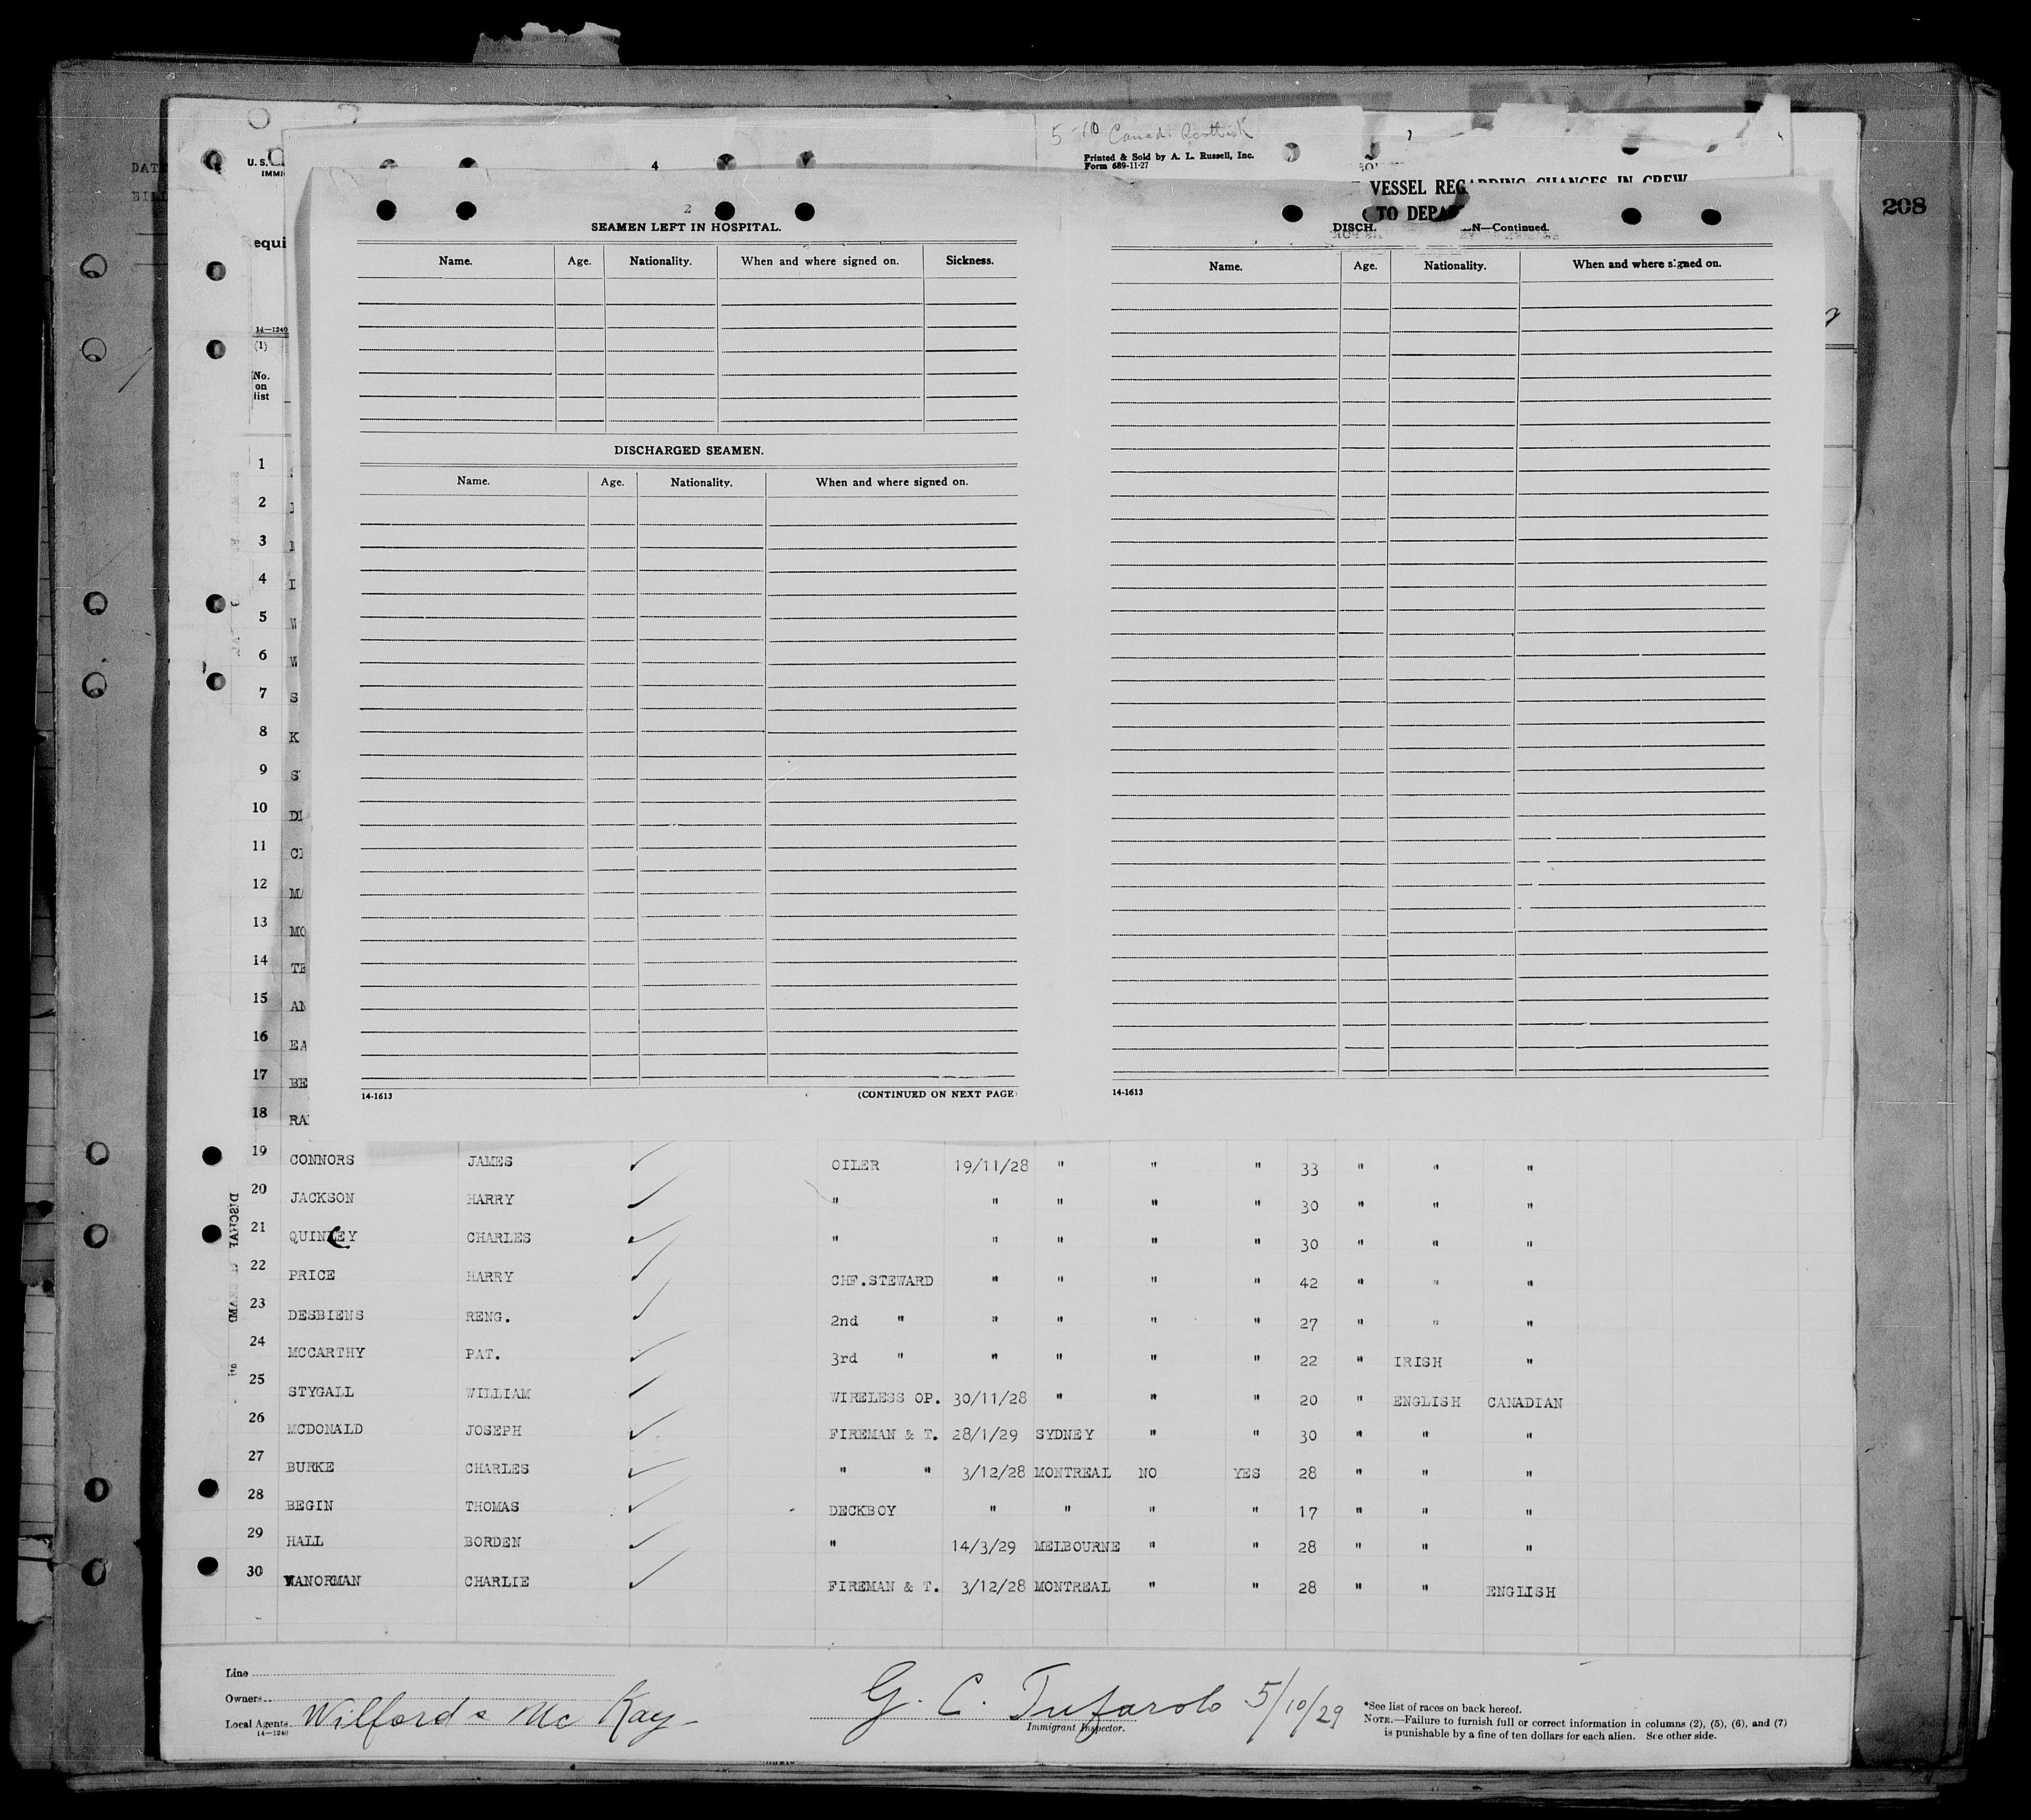 5-10 Canad. Scottish
Printed & Sold by A. L. Russell, Inc.
Form 689-11-27
4
U.S.
IMMI
208
VESSEL REGARDING CHANGES IN CREW
TO DEPA
2
SEAMEN LEFT IN HOSPITAL.
Name. Age. Nationality. When and where signed on. Sickness.
DISCHARGED SEAMEN.
Name. Age. Nationality. When and where signed on.
14-1613 (CONTINUED ON NEXT PAGE
DISCH. N—Continued.
Name. Age. Nationality. When and where signed on.
14-1613
equi
14—1240
(1)
No.
on
list
1
2
3
4 I
5 W
6 W
7 S
8 K
9 S
10 DI
11 CI
12 MA
13 MO
14 TE
15 AN
16 EA
17 BE
18 RA
19 CONNORS JAMES OILER 19/11/28 " " " 33 " " "
20 JACKSON HARRY " " " " " 30 " " "
21 QUINLEY CHARLES " " " " " 30 " " "
22 PRICE HARRY CHF.STEWARD " " " " 42 " " "
23 DESBIENS RENG. 2nd " " " " " 27 " " "
24 MCCARTHY PAT. 3rd " " " " " 22 " IRISH "
25 STYGALL WILLIAM WIRELESS OP. 30/11/28 " " " 20 " ENGLISH CANADIAN
26 MCDONALD JOSEPH FIREMAN & T. 28/1/29 SYDNEY " " 30 " " "
27 BURKE CHARLES " " 3/12/28 MONTREAL NO YES 28 " " "
28 BEGIN THOMAS DECKBOY " " " " 17 " " "
29 HALL BORDEN " 14/3/29 MELBOURNE " " 28 " " "
30 VANORMAN CHARLIE FIREMAN & T. 3/12/28 MONTREAL " " 28 " " ENGLISH
Line
Owners
Local Agents Wilford & McKay
14—1240
G. C. Tufarolo 5/10/29
Immigrant Inspector.
*See list of races on back hereof.
NOTE.—Failure to furnish full or correct information in columns (2), (5), (6), and (7)
is punishable by a fine of ten dollars for each alien. See other side.